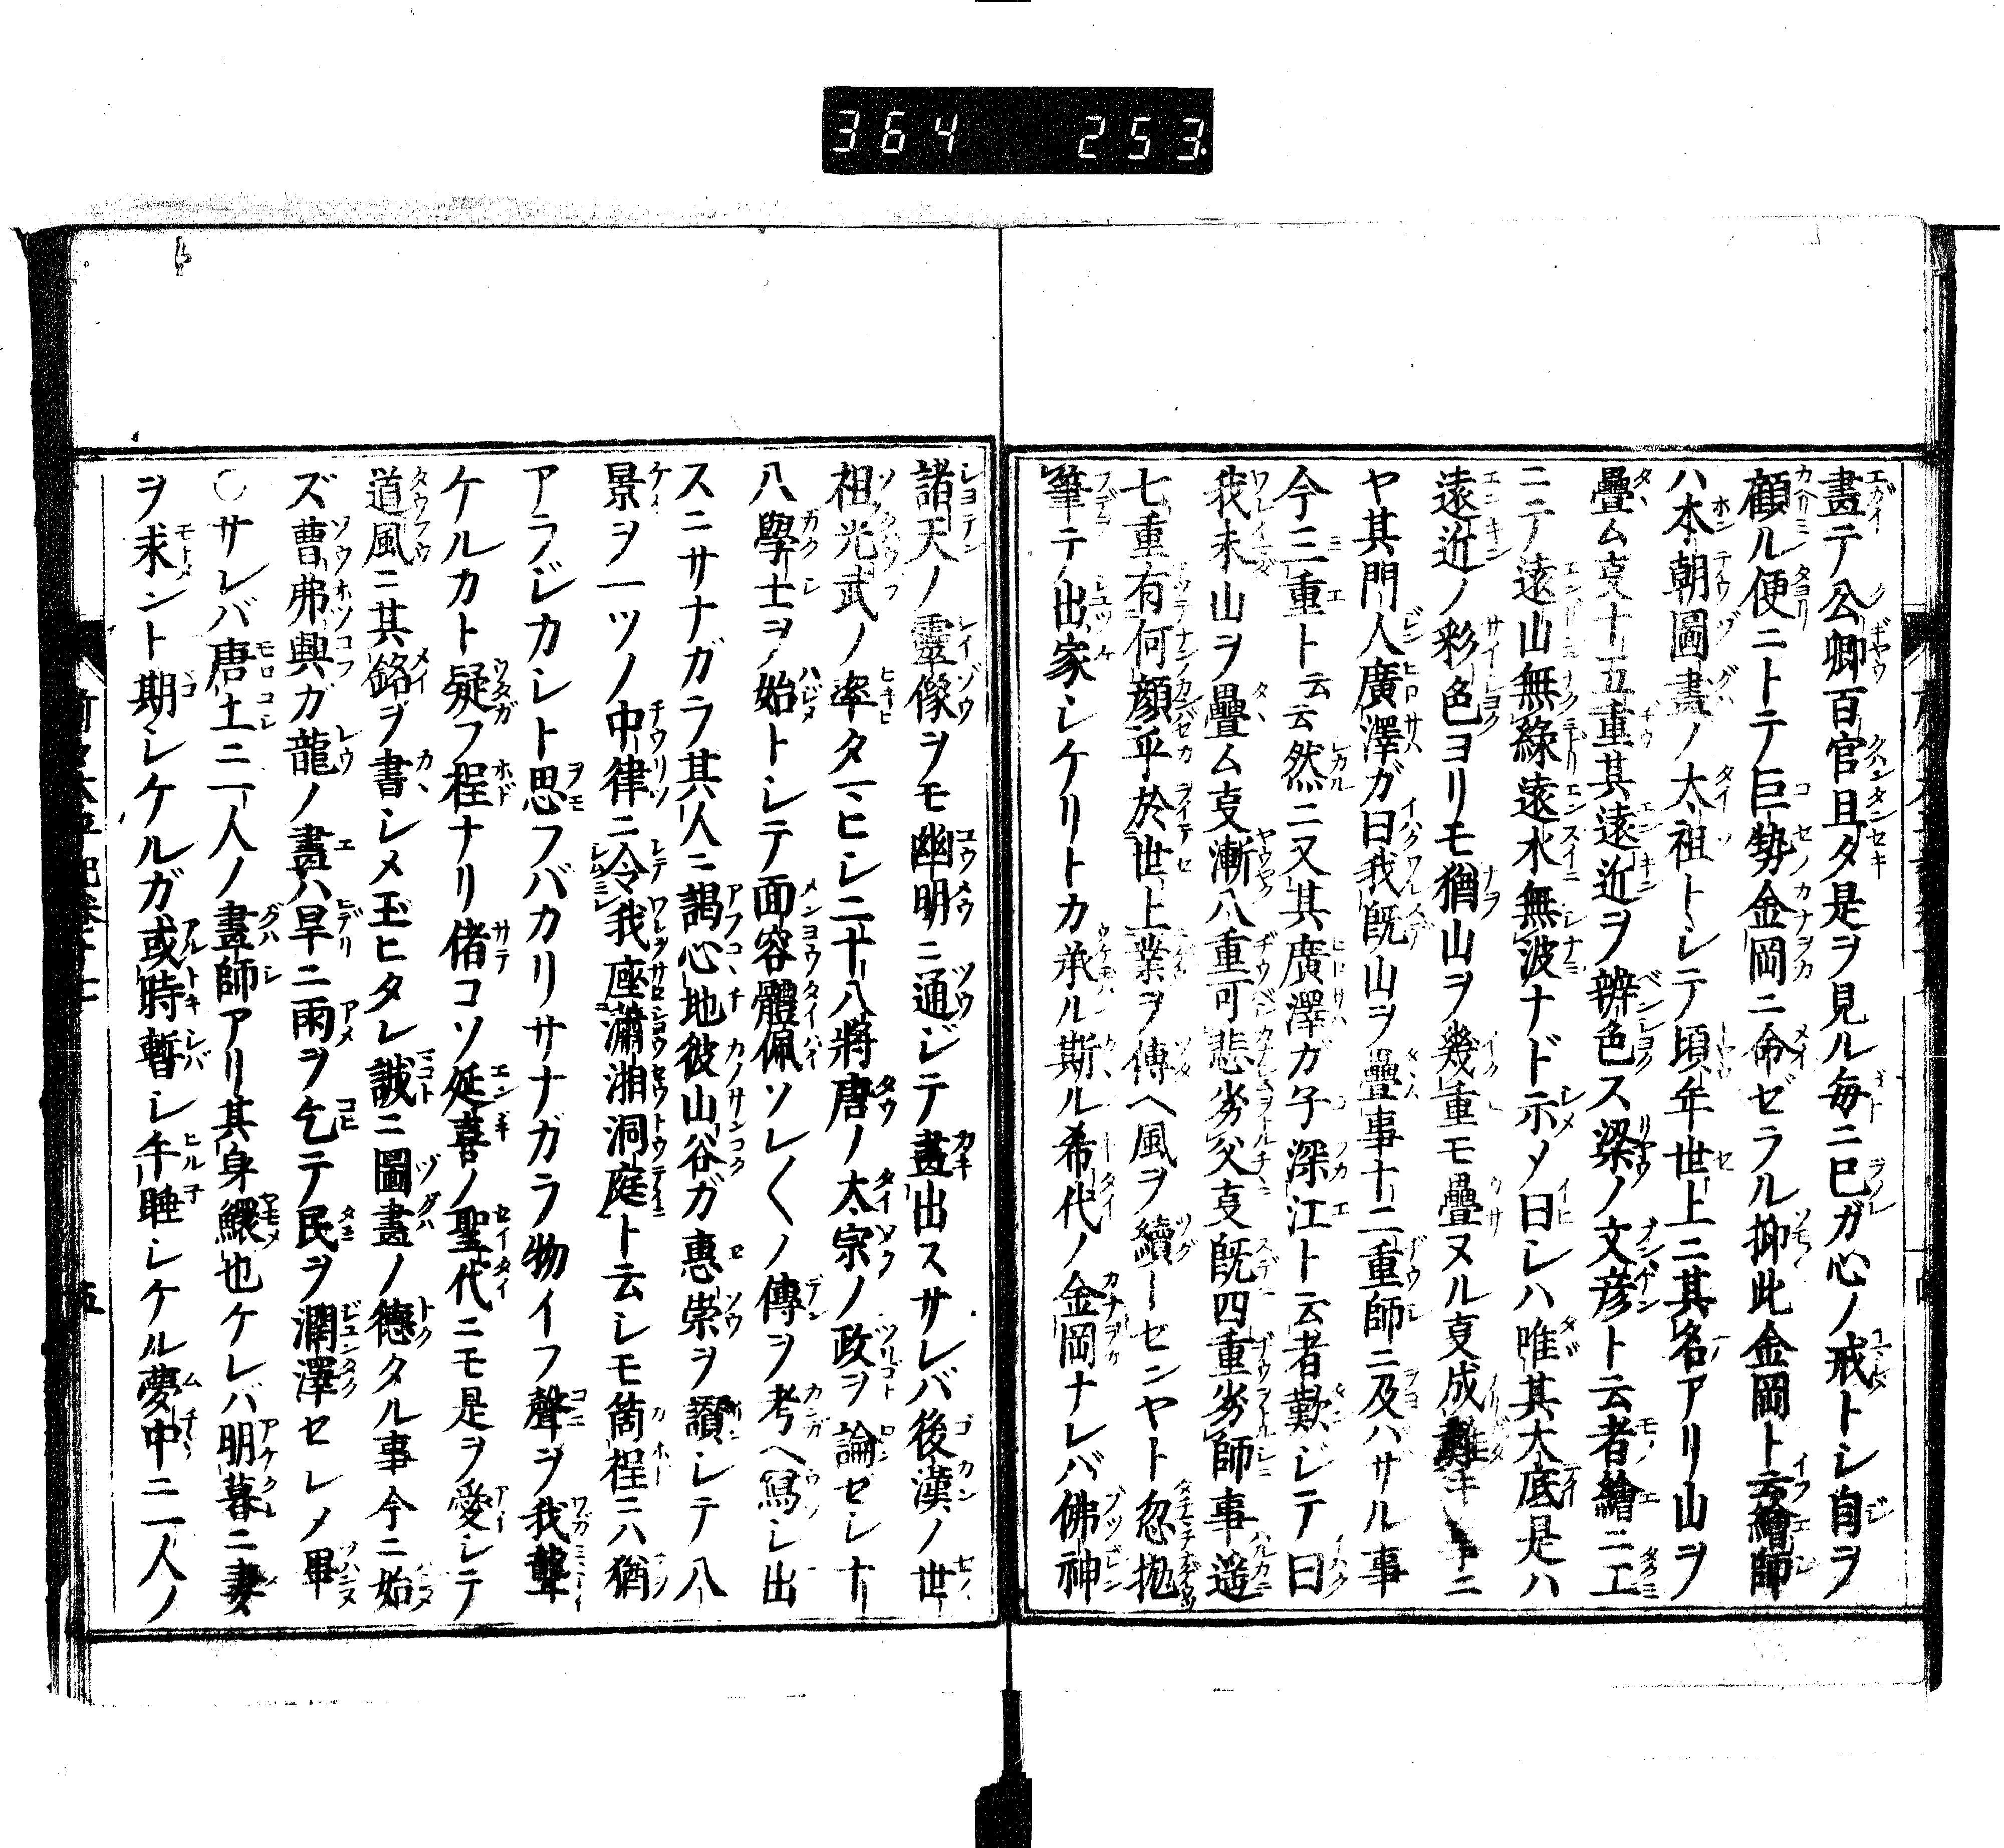 364 253
畫テ公卿百官且タ是ヲ見ル毎ニ巳ガ心ノ戒トシ自ヲ
顧ル便ニトテ巨勢金岡ニ命ゼラル抑此金岡ト云繪師
ハ本朝圖畫ノ太祖トシテ頃年世上ニ其名アリ山ヲ
疊ム㕝十五重其遠近ヲ辨色ス梁ノ文彦ト云者繪ニ工
ニテ遠山無綠遠水無波ナド示メ曰シハ唯其大底是ハ
遠近ノ彩色ヨリモ猶山ヲ幾重モ疊ヌル㕝成難キトニ
ヤ其門人廣澤ガ曰我既山ヲ疊事十二重師ニ及ハサル事
今三重ト云云然ニ又其廣澤ガ子深江ト云者歎ジテ曰
我未山ヲ疊ム㕝漸八重可悲劣父㕝既四重劣師事遥
七重有何顔乎於世上業ヲ傳ヘ風ヲ續ーセンヤト忽抛
筆テ出家シケリトカ承ル斯ル希代ノ金岡ナレバ佛神
諸天ノ靈像ヲモ幽明ニ通ジテ畫出スサレバ後漢ノ世
祖光武ノ率タヒシ二十八將唐ノ太宗ノ政ヲ論ゼシ十
八學士ヲ始トシテ面容體佩ソレ〱ノ傳ヲ考ヘ寫シ出
スニサナガラ其人ニ謁心地彼山谷ガ惠崇ヲ讃シテ八
景ヲ一ツノ中律ニ令我座瀟湘洞庭ト云シモ箇程ニハ猶
アラジカシト思フバカリサナガラ物イフ聲ヲ我聾
ケルカト疑フ程ナリ偖コソ延喜ノ聖代ニモ是ヲ愛シテ
道風ニ其銘ヲ書シメ玉ヒタレ誠ニ圖畫ノ德タル事今ニ始
ズ曹弗興ガ龍ノ畫ハ旱ニ雨ヲ乞テ民ヲ潤澤セシメ畢
○サレバ唐土ニ一人ノ畫師アリ其身鰥也ケレバ明暮ニ妻
ヲ求ント期シケルガ或時暫シ午睡シケル夢中ニ一人ノ